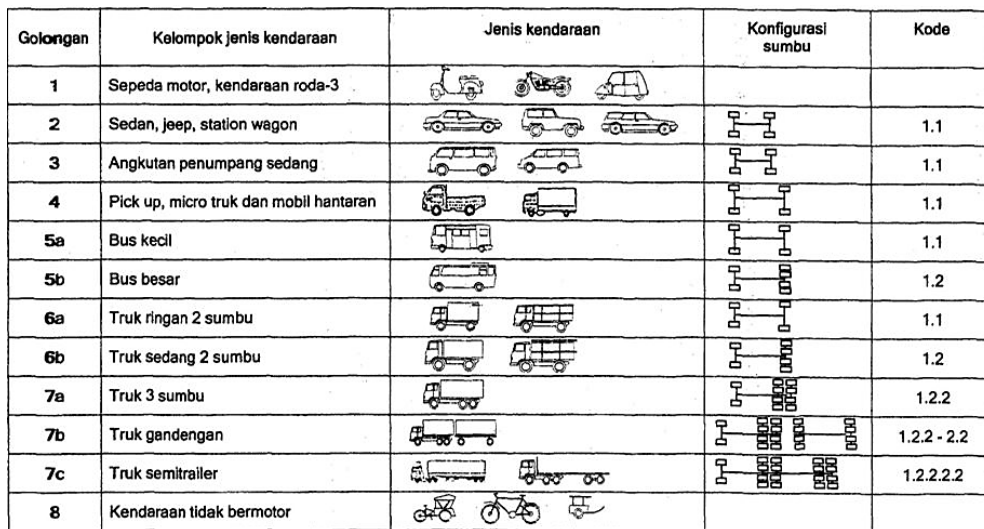 Golongan Kelompok jenis kendaraan Jenis kendaraan Konfigurasi sumbu Kode
1 Sepeda motor, kendaraan roda-3
2 Sedan, jeep, station wagon 1.1
3 Angkutan penumpang sedang 1.1
4 Pick up, micro truk dan mobil hantaran 1.1
5a Bus kecil 1.1
5b Bus besar 1.2
6a Truk ringan 2 sumbu 1.1
6b Truk sedang 2 sumbu 1.2
7a Truk 3 sumbu 1.2.2
7b Truk gandengan 1.2.2 - 2.2
7c Truk semitrailer 1.2.2.2.2
8 Kendaraan tidak bermotor